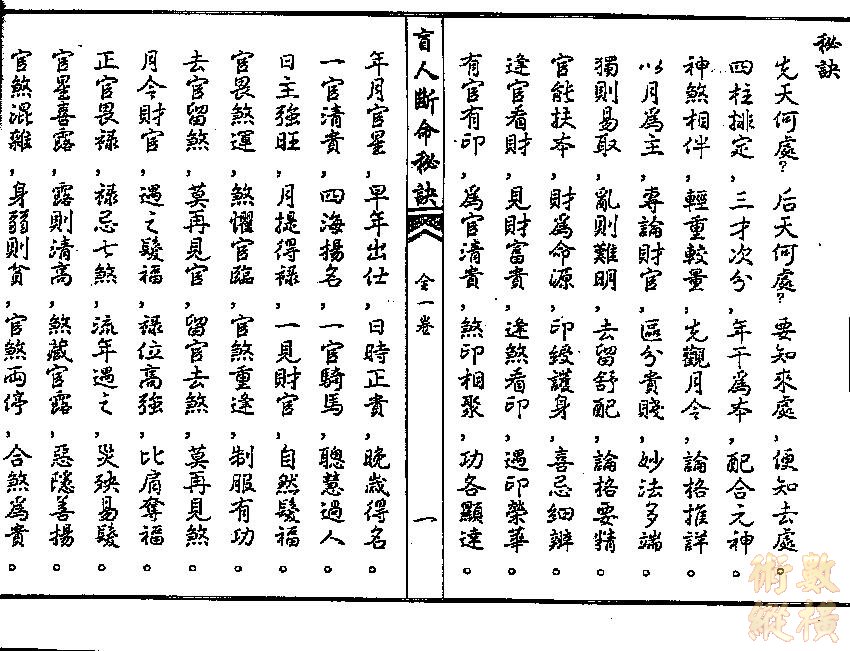 秘訣
先天何處？后天何處？要知來處，便知去處。
四柱排定，三才次分，年干為本，配合元神。
神煞相伴，輕重較量，先觀月令，論格推詳。
以月為主，專論財官，區分貴賤，妙法多端。
獨則易取，亂則難明，去留舒配，論格要精。
官能扶本，財為命源，印綬護身，喜忌細辨。
逢官看財，見財富貴，逢煞看印，遇印榮華。
有官有印，為官清貴，煞印相聚，功各顯達。
盲人斷命秘訣 全一卷 一
年月官星，早年出仕，日時正貴，晚歲得名。
一官清貴，四海揚名，一官騎馬，聰慧過人。
日主強旺，月提得祿，一見財官，自然發福。
官畏煞運，煞懼官臨，官煞重逢，制服有功。
去官留煞，莫再見官，留官去煞，莫再見煞。
月令財官，遇之發福，祿位高強，比肩奪福。
正官畏祿，祿忌七煞，流年遇之，災殃易發。
官星喜露，露則清高，煞藏官露，惡隱善揚。
官煞混雜，身弱則貧，官煞兩停，合煞為貴。
數橫
術縱